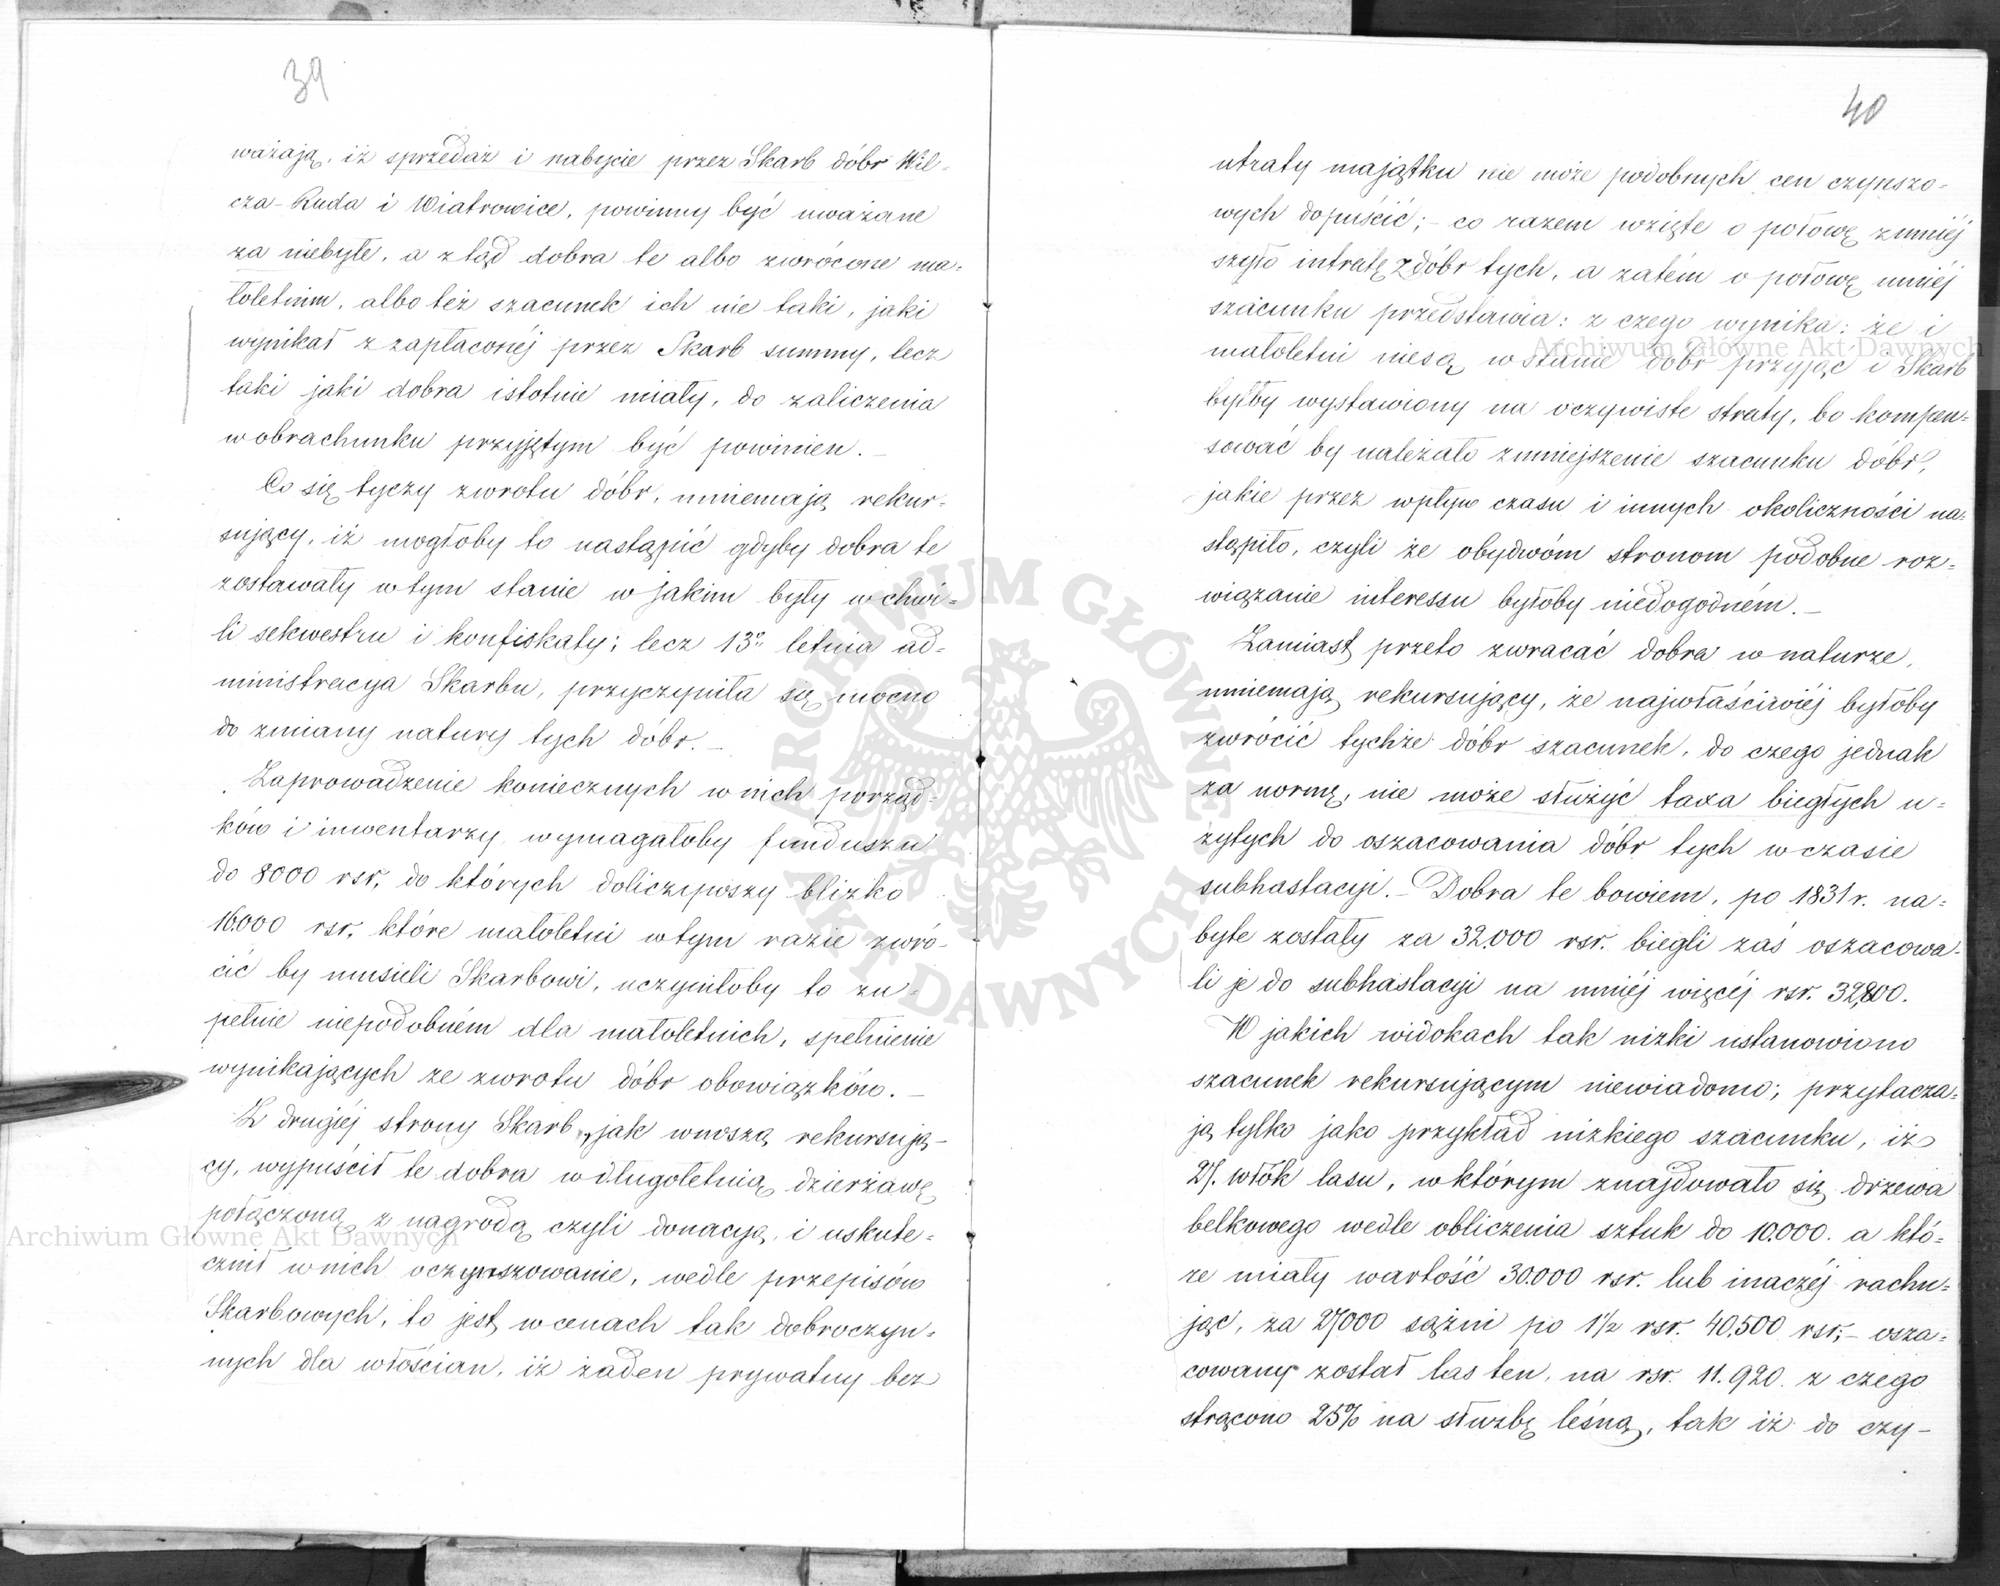 39
ważają, iż sprzedaż i nabycie przez Skarb dóbr Wil-
cza-Ruda i Wiatrowice, powinny być uważane
za niebyłe, a ztąd dobra te albo zwrócone ma-
loletnim, albo też szacunek ich nie taki, jaki
wynikał z zapłaconéj przez Skarb summy, lecz
taki jaki dobra istotnie miały, do zaliczenia
w obrachunku przyjętym być powinien. –
Co się tyczy zwrotu dóbr, mniemają rekur-
sujący, iż mogłoby to nastąpić gdyby dobra te
zostawały w tym stanie w jakim były w chwi-
li sekwestru i konfiskaty; lecz 13o letnia ad-
ministracya Skarbu, przyczyniła się mocno
do zmiany natury tych dóbr. –
Zaprowadzenie koniecznych w nich porząd-
ków i inwentarzy, wymagałoby funduszu
do 8000 rsr, do których doliczywszy blizko
16.000 rsr. które maloletni w tym razie zwró-
cić by musieli Skarbowi, uczyniłoby to zu-
pełnie niepodobném dla małoletnich, spełnienie
wynikających ze zwrotu dóbr obowiązków. –
Z drugiéj strony Skarb, jak wnoszą rekursują-
cy, wypuścił te dobra w długoletnią dzierżawę
połączoną z nagrodą czyli donacyą, i uskute-
cznił w nich oczynszowanie, wedle przepisów
Skarbowych, to jest w cenach tak dobroczyn-
nych dla włościan, iż żaden prywatny bez
40
utraty majątku nie może podobnych cen czynszo-
wych dopuścić; – co razem wzięte o połowę zmniéj
szyło intratę z dóbr tych, a zatém o połowę mniéj
szacunku przedstawia: z czego wynika: że i
małoletni niesą w stanie dóbr przyjąć i Skarb
byłby wystawiony na oczywiste straty, bo kompen-
sować by należało zmniejszenie szacunku dóbr,
jakie przez wpływ czasu i innych okoliczności na-
stąpiło, czyli że obydwóm stronom podobne roz-
wiązanie interessu byłoby niedogodném. –
Zamiast przeto zwracać dobra w naturze,
mniemają rekursujący, że najwłaściwiéj byłoby
zwrócić tychże dóbr szacunek, do czego jednak
za normę, nie może służyć taxa biegłych u-
żytych do oszacowania dóbr tych w czasie
subhastacyi. – Dobra te bowiem, po 1831 r. na-
byte zostały za 32.000 rsr. biegli zaś oszacowa-
li je do subhastacyi na mniéj więcéj rsr. 32,800.
W jakich widokach tak nizki ustanowiono
szacunek rekursującym niewiadomo; przytacza-
ją tylko jako przykład nizkiego szacunku, iż
27. włók lasu, w którym znajdowało się drzewa
belkowego wedle obliczenia sztuk do 10.000. a któ-
re miały wartość 30.000 rsr. lub inaczéj rachu-
jąc, za 27000 sążni po 1 1/2 rsr. 40,500 rsr, – osza-
cowany został las ten, na rsr. 11.920. z czego
strącono 25% na służbę leśną, tak iż do czy-
Archiwum Główne Akt Dawnych
Archiwum Główne Akt Dawnych
ARCHIWUM GŁÓWNE AKT DAWNYCH